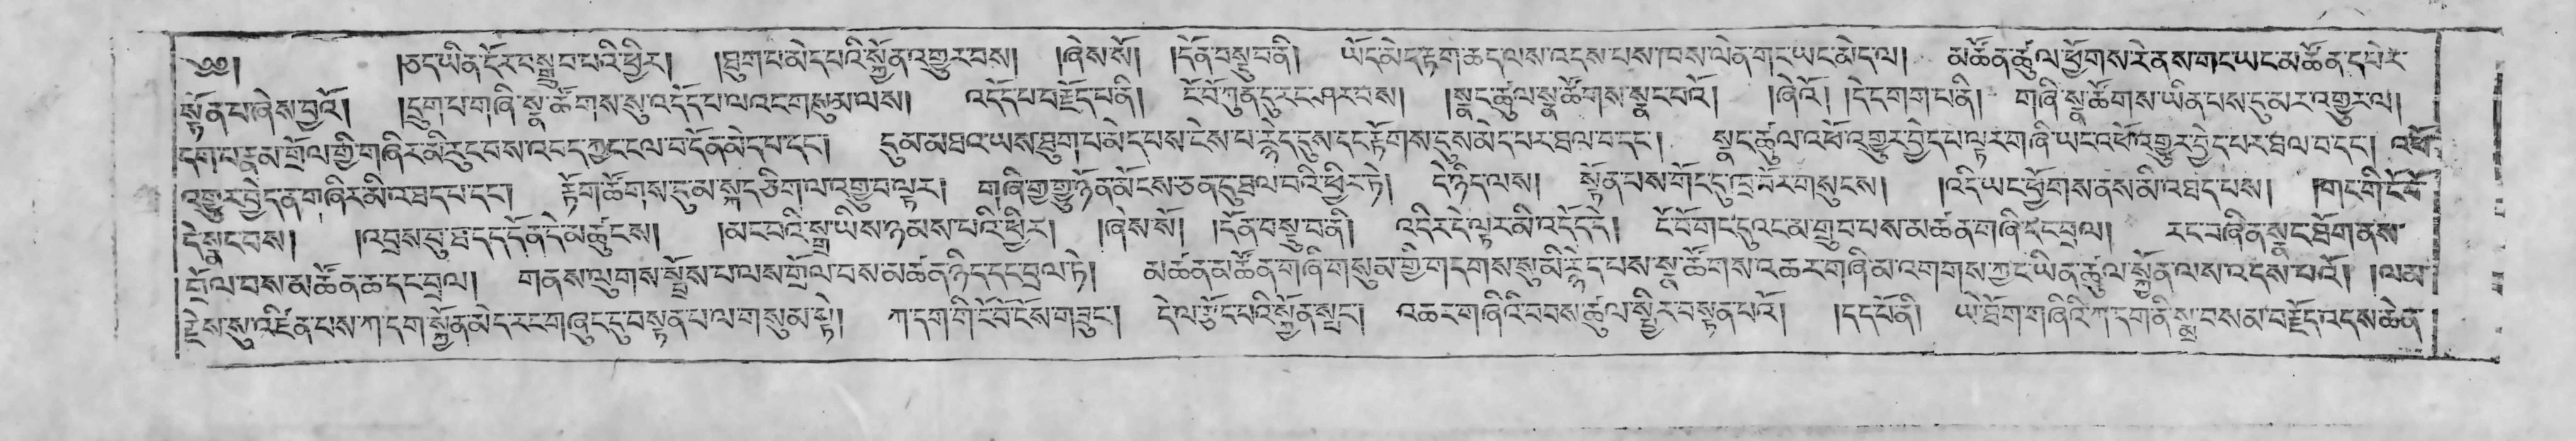 ༄༅། །ཅད་ཡིན་ངོར་བསྒྲུབ་པའི་ཕྱིར། །ཐུག་པ་མེད་པའི་སྐྱོན་འགྱུར་བས། །ཞེས་སོ། །དོན་བསྡུ་བ་ནི། ཡོད་མེད་རྟག་ཆད་ལས་འདས་པས་ཁས་ལེན་གང་ཡང་མེད་ལ། མཚོན་ཚུལ་ཕྱོགས་རེ་ནས་གང་ཡང་མཚོན་དཔེར་
སྟོན་པ་ཞེས་བྱའོ། །དྲུག་པ་གཞི་སྣ་ཚོགས་སུ་འདོད་པ་ལའང་གསུམ་ལས། འདོད་པ་བརྗོད་པ་ནི། ངོ་བོ་ཀུན་ཏུ་རང་ཤར་བས། །སྣང་ཚུལ་སྣ་ཚོགས་སྣང་བའོ། །ཞེའོ། །དེ་དགག་པ་ནི། གཞི་སྣ་ཚོགས་ཡིན་པས་དུ་མར་འགྱུར་ལ།
དག་པ་རྣམ་གྲོལ་གྱི་གཞིར་མི་རུང་བས་འབད་ཀྱང་ངལ་བ་དོན་མེད་པ་དང་། དུམ་མཐའ་ཡས་ཐུག་པ་མེད་པས་ངེས་པ་རྙེད་དུས་དང་རྟོགས་དུས་མེད་པར་ཐལ་བ་དང་། སྣང་ཚུལ་འཕོ་འགྱུར་བྱེད་པ་ལྟར་གཞི་ཡང་འཕོ་འགྱུར་བྱེད་པར་ཐལ་བ་དང་། འཕོ་
འགྱུར་བྱེད་ན་གཞིར་མི་འཐད་པ་དང་། རྟོག་ཚོགས་དུ་མ་སྐད་ཅིག་ལ་འགྱུ་བ་ལྟར། གཞི་གྱ་གྱུ་ཉོན་མོངས་ཅན་དུ་ཐལ་བའི་ཕྱིར་ཏེ། དེ་ཉིད་ལས། སྟོན་པས་གོང་དུ་ཁྲ་བོར་གསུངས། །འདི་ཡང་ཕྱོགས་ནས་མི་འཐད་པས། །གང་གི་ངོ་བོ་
དེ་སྣང་བས། །འབྲས་བུ་ཐ་དད་དོན་དེ་མཚུངས། །མང་བའི་སྒྲ་ཡིས་ཉམས་པའི་ཕྱིར། །ཞེས་སོ། །དོན་བསྡུ་བ་ནི། འདིར་དེ་ལྟར་མི་འདོད་དེ། ངོ་བོ་གང་དུའང་མ་གྲུབ་པས་མཚན་གཞི་དང་བྲལ། རང་བཞིན་སྣང་ཐོག་ནས་
གྲོལ་བས་མཚོན་ཆ་དང་བྲལ། གནས་ལུགས་སྤྲོས་པ་ལས་གྲོལ་བས་མཚན་ཉིད་དང་བྲལ་ཏེ། མཚན་མཚོན་གཞི་གསུམ་གྱི་གདགས་སུ་མི་རྙེད་པས་སྣ་ཚོགས་འཆར་གཞི་མ་འགགས་ཀྱང་ཡིན་ཚུལ་སྐྱོན་ལས་འདས་པའོ། །ལམ་
རྗེས་སུ་འཛིན་པས་ཀ་དག་སྐྱོན་མེད་རང་གཞུང་དུ་བསྟན་པ་ལ་གསུམ་སྟེ། ཀ་དག་གི་ངོ་བོ་ངོས་གཟུང་། དེ་ལ་རྩོད་པའི་སྐྱོན་སྤང་། འཆར་གཞིའི་བབས་ཚུལ་སྤྱིར་བསྟན་པའོ། །དང་པོ་ནི། ཡེ་ཐོག་གཞིའི་ཀ་དག་ནི་སྨྲ་བསམ་བརྗོད་འདས་ཆེན་